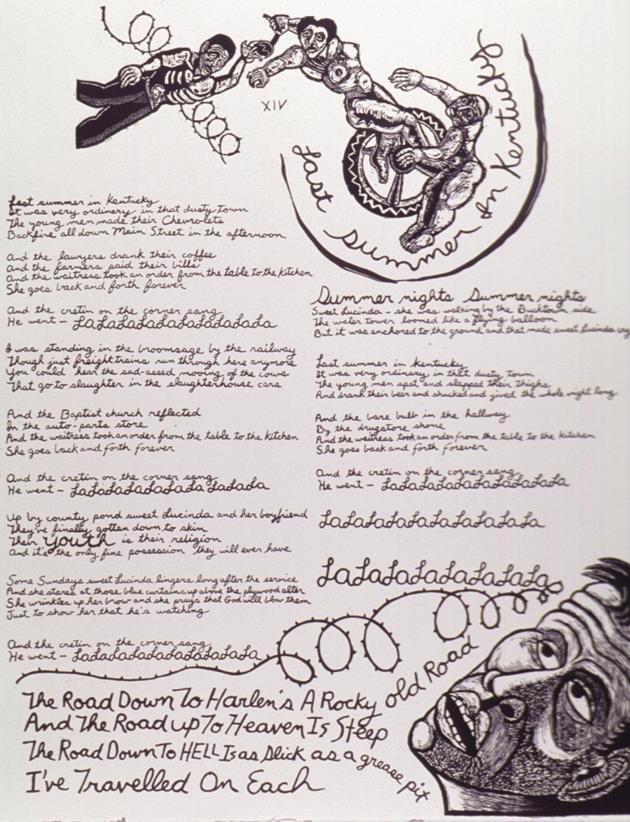 XIV
Last summer in Kentucky
Last summer in Kentucky
It was very ordinary in that dusty town
The young men made their Chevrolets
Backfire all down Main Street in the afternoon
And the lawyers drank their coffee
And the farmers paid their bills
And the waitress took an order from the table to the kitchen
She goes back and forth forever
And the cretin on the corner sang
He went - LaLaLaLaLaLaLaLaLaLa
I was standing in the broomsage by the railway
Though just freight trains run through here anymore
You could hear the sad-assed mooing of the cows
That go to slaughter in the slaughterhouse cars
And the Baptist church reflected
In the auto-parts store
And the waitress took an order from the table to the kitchen
She goes back and forth forever
And the cretin on the corner sang
He went - LaLaLaLaLaLaLaLaLaLa
Up by county pond sweet Lucinda and her boyfriend
They've finally gotten down to skin
Their youth is their religion
And it's the only fine possession they will ever have
Some Sundays sweet Lucinda lingers long after the service
And she stares at those blue curtains up above the plywood alter
She wrinkles up her brow and she prays that God will blow them
Just to show her that he's watching
And the cretin on the corner sang
He went - LaLaLaLaLaLaLaLaLaLa
Summer nights Summer nights
Sweet Lucinda - she was walking by the Bucktown side
The water tower loomed like a flying balloon
But it was anchored to the ground and that made sweet Lucinda cry
Last summer in Kentucky
It was very ordinary in that dusty town
The young men spat and slapped their thighs
And drank their beer and shucked and jived the whole night long
And the bare bulb in the hallway
By the drugstore shone
And the waitress took an order from the table to the kitchen
She goes back and forth forever
And the cretin on the corner sang
He went - LaLaLaLaLaLaLaLaLaLa
LaLaLaLaLaLaLaLaLaLaLa
LaLaLaLaLaLaLaLaLa
The Road Down To Harlen's A Rocky old Road
And The Road up To Heaven Is Steep
The Road Down To HELL Is as Slick as a grease pit
I've Travelled On Each